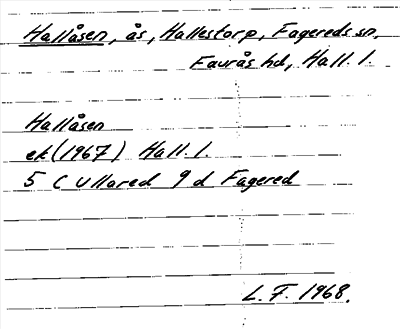 Hallåsen, ås, Hallestorp, Fagereds sn,
Faurås hd, Hall. l.
Hallåsen
ek (1967) Hall. l.
5 C Ullared 9 d Fagered
L. F. 1968.